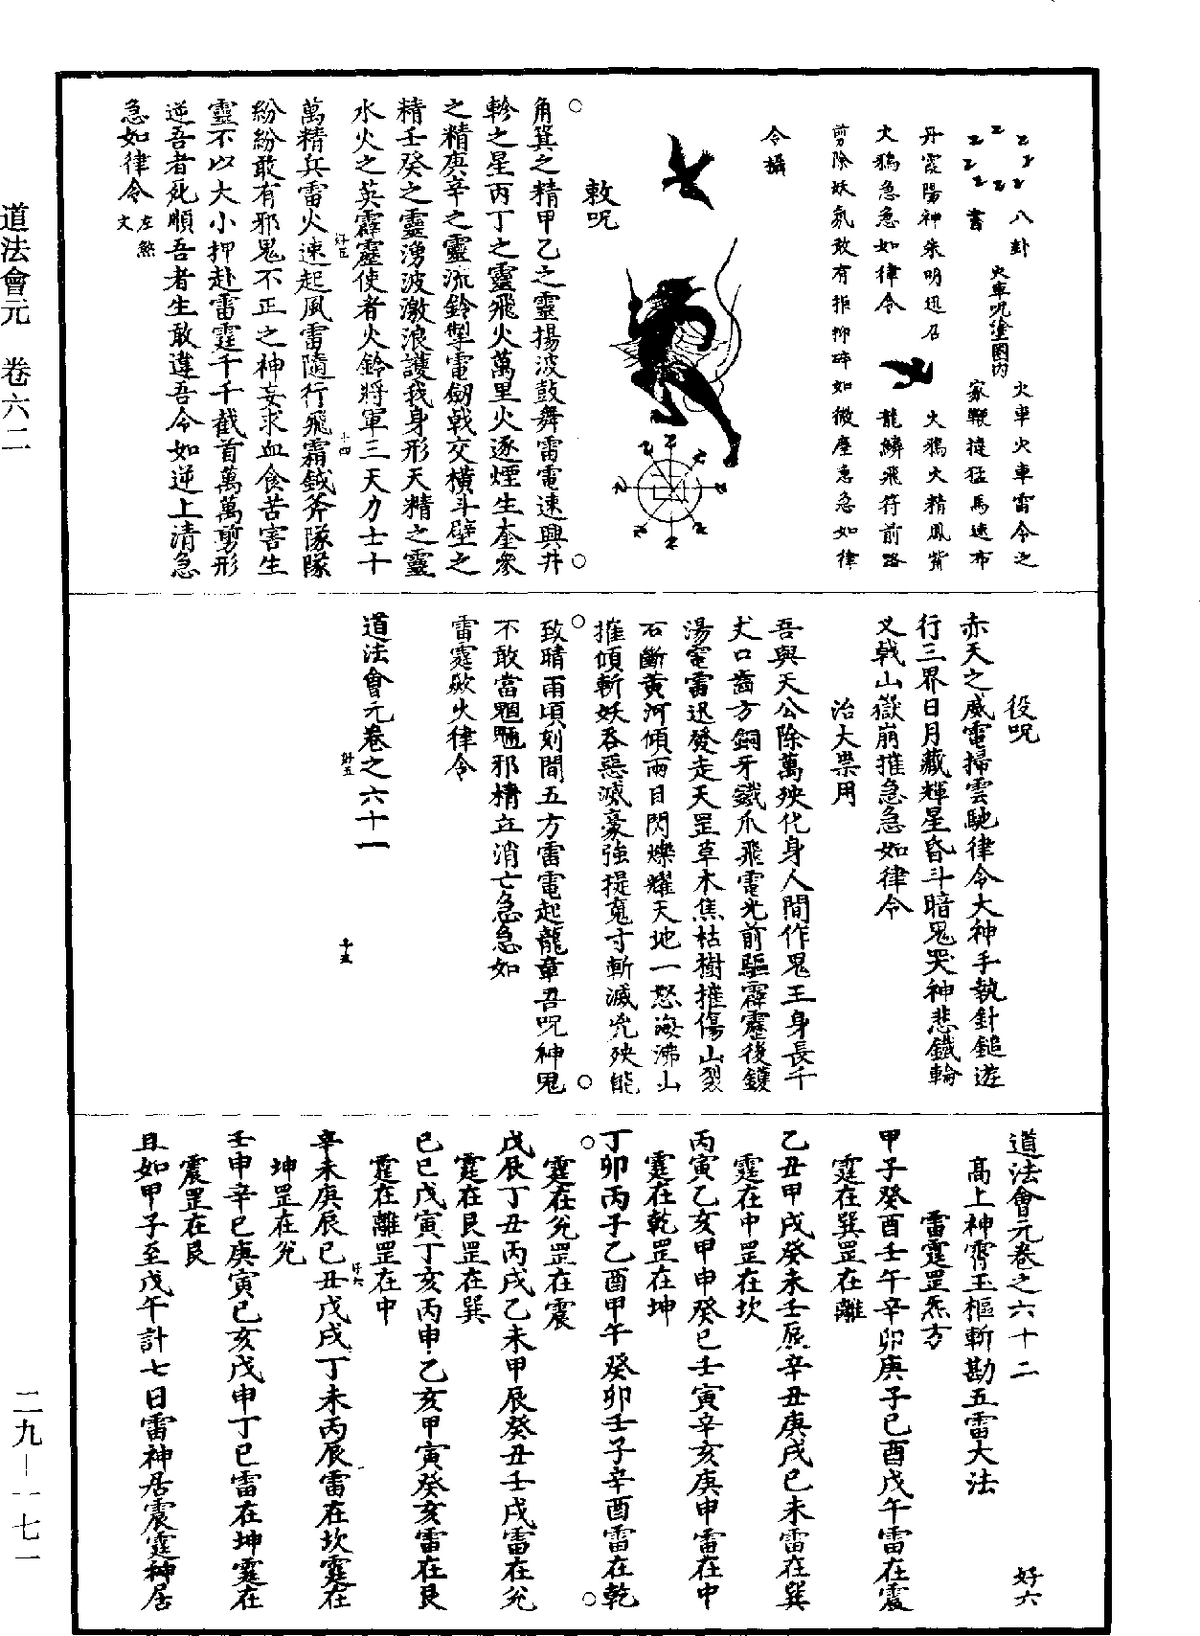 八卦
書
火車呪塗圈內
火車火車雷令之
家鞭撻猛馬速布
丹霞陽神朱明迅召
火鴉火精鳳嘴
火鴉急急如律令
龍鱗飛符前路
剪除妖氛敢有拒抑碎如微塵急急如律
令攝
敕呪
角箕之精甲乙之靈揚波鼓舞雷電速興井
軫之星丙丁之靈飛火萬里火逐煙生奎參
之精庚辛之靈流鈴掣電劒戟交橫斗壁之
精壬癸之靈湧波激浪護我身形天精之靈
水火之英霹靂使者火鈴將軍三天力士十
萬精兵雷火速起風雷隨行飛霜鉞斧隊隊
紛紛敢有邪鬼不正之神妄求血食苦害生
靈不以大小押赴雷霆千千截首萬萬剪形
逆吾者死順吾者生敢違吾令如逆上清急
急如律令
左煞
文
好五
十四
役呪
赤天之威電掃雲馳律令大神手執針鎚遊
行三界日月藏輝星昏斗暗鬼哭神悲鐵輪
叉戟山嶽崩摧急急如律令
治大祟用
吾與天公除萬殃化身人間作鬼王身長千
丈口齒方銅牙鐵爪飛電光前驅霹靂後鑊
湯電雷迅發走天罡草木焦枯樹摧傷山裂
石斷黃河傾兩目閃爍耀天地一怒海沸山
摧傾斬妖吞惡滅豪強提䰟寸斬滅兇殃能
致晴雨頃刻間五方雷電起龍章吾呪神鬼
不敢當魍魎邪精立消亡急急如
雷霆歘火律令
道法會元卷之六十一
好五
十五
道法會元卷之六十二
好六
高上神霄玉樞斬勘五雷大法
雷霆罡炁方
甲子癸酉壬午辛卯庚子己酉戊午雷在震
霆在巽罡在離
乙丑甲戌癸未壬辰辛丑庚戌己未雷在巽
霆在中罡在坎
丙寅乙亥甲申癸巳壬寅辛亥庚申雷在中
霆在乾罡在坤
丁卯丙子乙酉甲午癸卯壬子辛酉雷在乾
霆在兌罡在震
戊辰丁丑丙戌乙未甲辰癸丑壬戌雷在兌
霆在艮罡在巽
己巳戊寅丁亥丙申乙亥甲寅癸亥雷在艮
霆在離罡在中
辛未庚辰己丑戊戌丁未丙辰雷在坎霆在
坤罡在兌
好六
壬申辛巳庚寅己亥戊申丁巳雷在坤霆在
震罡在艮
且如甲子至戊午計七日雷神居震霆神居
道法會元 卷六二
二九–一七一